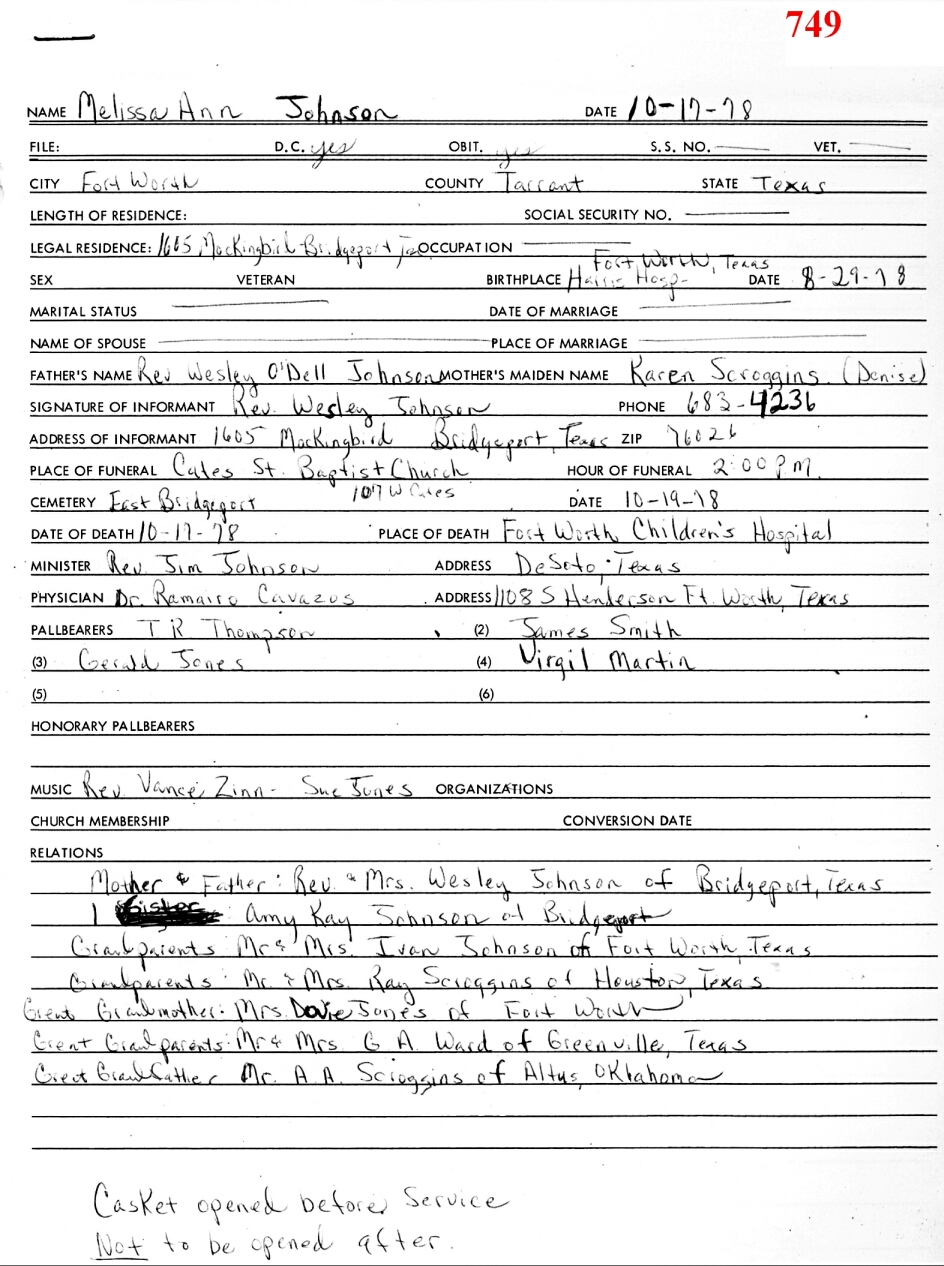 749
NAME Melissa Ann Johnson DATE 10-17-78
FILE: D.C. yes OBIT. yes S.S. NO. VET.
CITY Fort Worth COUNTY Tarrant STATE Texas
LENGTH OF RESIDENCE: SOCIAL SECURITY NO.
LEGAL RESIDENCE: 1605 Mockingbird Bridgeport Tex OCCUPATION
Fort Worth, Texas
SEX VETERAN BIRTHPLACE Harris Hosp. DATE 8-29-78
MARITAL STATUS DATE OF MARRIAGE
NAME OF SPOUSE PLACE OF MARRIAGE
FATHER'S NAME Rev Wesley O'Dell Johnson MOTHER'S MAIDEN NAME Karen Scroggins (Denise)
SIGNATURE OF INFORMANT Rev. Wesley Johnson PHONE 683-4236
ADDRESS OF INFORMANT 1605 Mockingbird Bridgeport, Texas ZIP 76026
PLACE OF FUNERAL Cates St. Baptist Church HOUR OF FUNERAL 2:00 P.M.
107 W Cates
CEMETERY East Bridgeport DATE 10-19-78
DATE OF DEATH 10-17-78 PLACE OF DEATH Fort Worth Children's Hospital
MINISTER Rev. Jim Johnson ADDRESS DeSoto, Texas
PHYSICIAN Dr. Ramairo Cavazos ADDRESS 1108 S Henderson Ft. Worth, Texas
PALLBEARERS T R Thompson (2) James Smith
(3) Gerald Jones (4) Virgil Martin
(5) (6)
HONORARY PALLBEARERS
MUSIC Rev Vance Zinn - Sue Jones ORGANIZATIONS
CHURCH MEMBERSHIP CONVERSION DATE
RELATIONS
Mother & Father: Rev. & Mrs. Wesley Johnson of Bridgeport, Texas
1 Sister: Amy Kay Johnson of Bridgeport
Grandparents: Mr & Mrs. Ivan Johnson of Fort Worth, Texas
Grandparents: Mr. & Mrs. Ray Scroggins of Houston, Texas
Great Grandmother: Mrs. Dovie Jones of Fort Worth
Great Grandparents: Mr & Mrs G A. Ward of Greenville, Texas
Great Grandfather Mr. A. A. Scroggins of Altus, Oklahoma
Casket opened before Service
Not to be opened after.